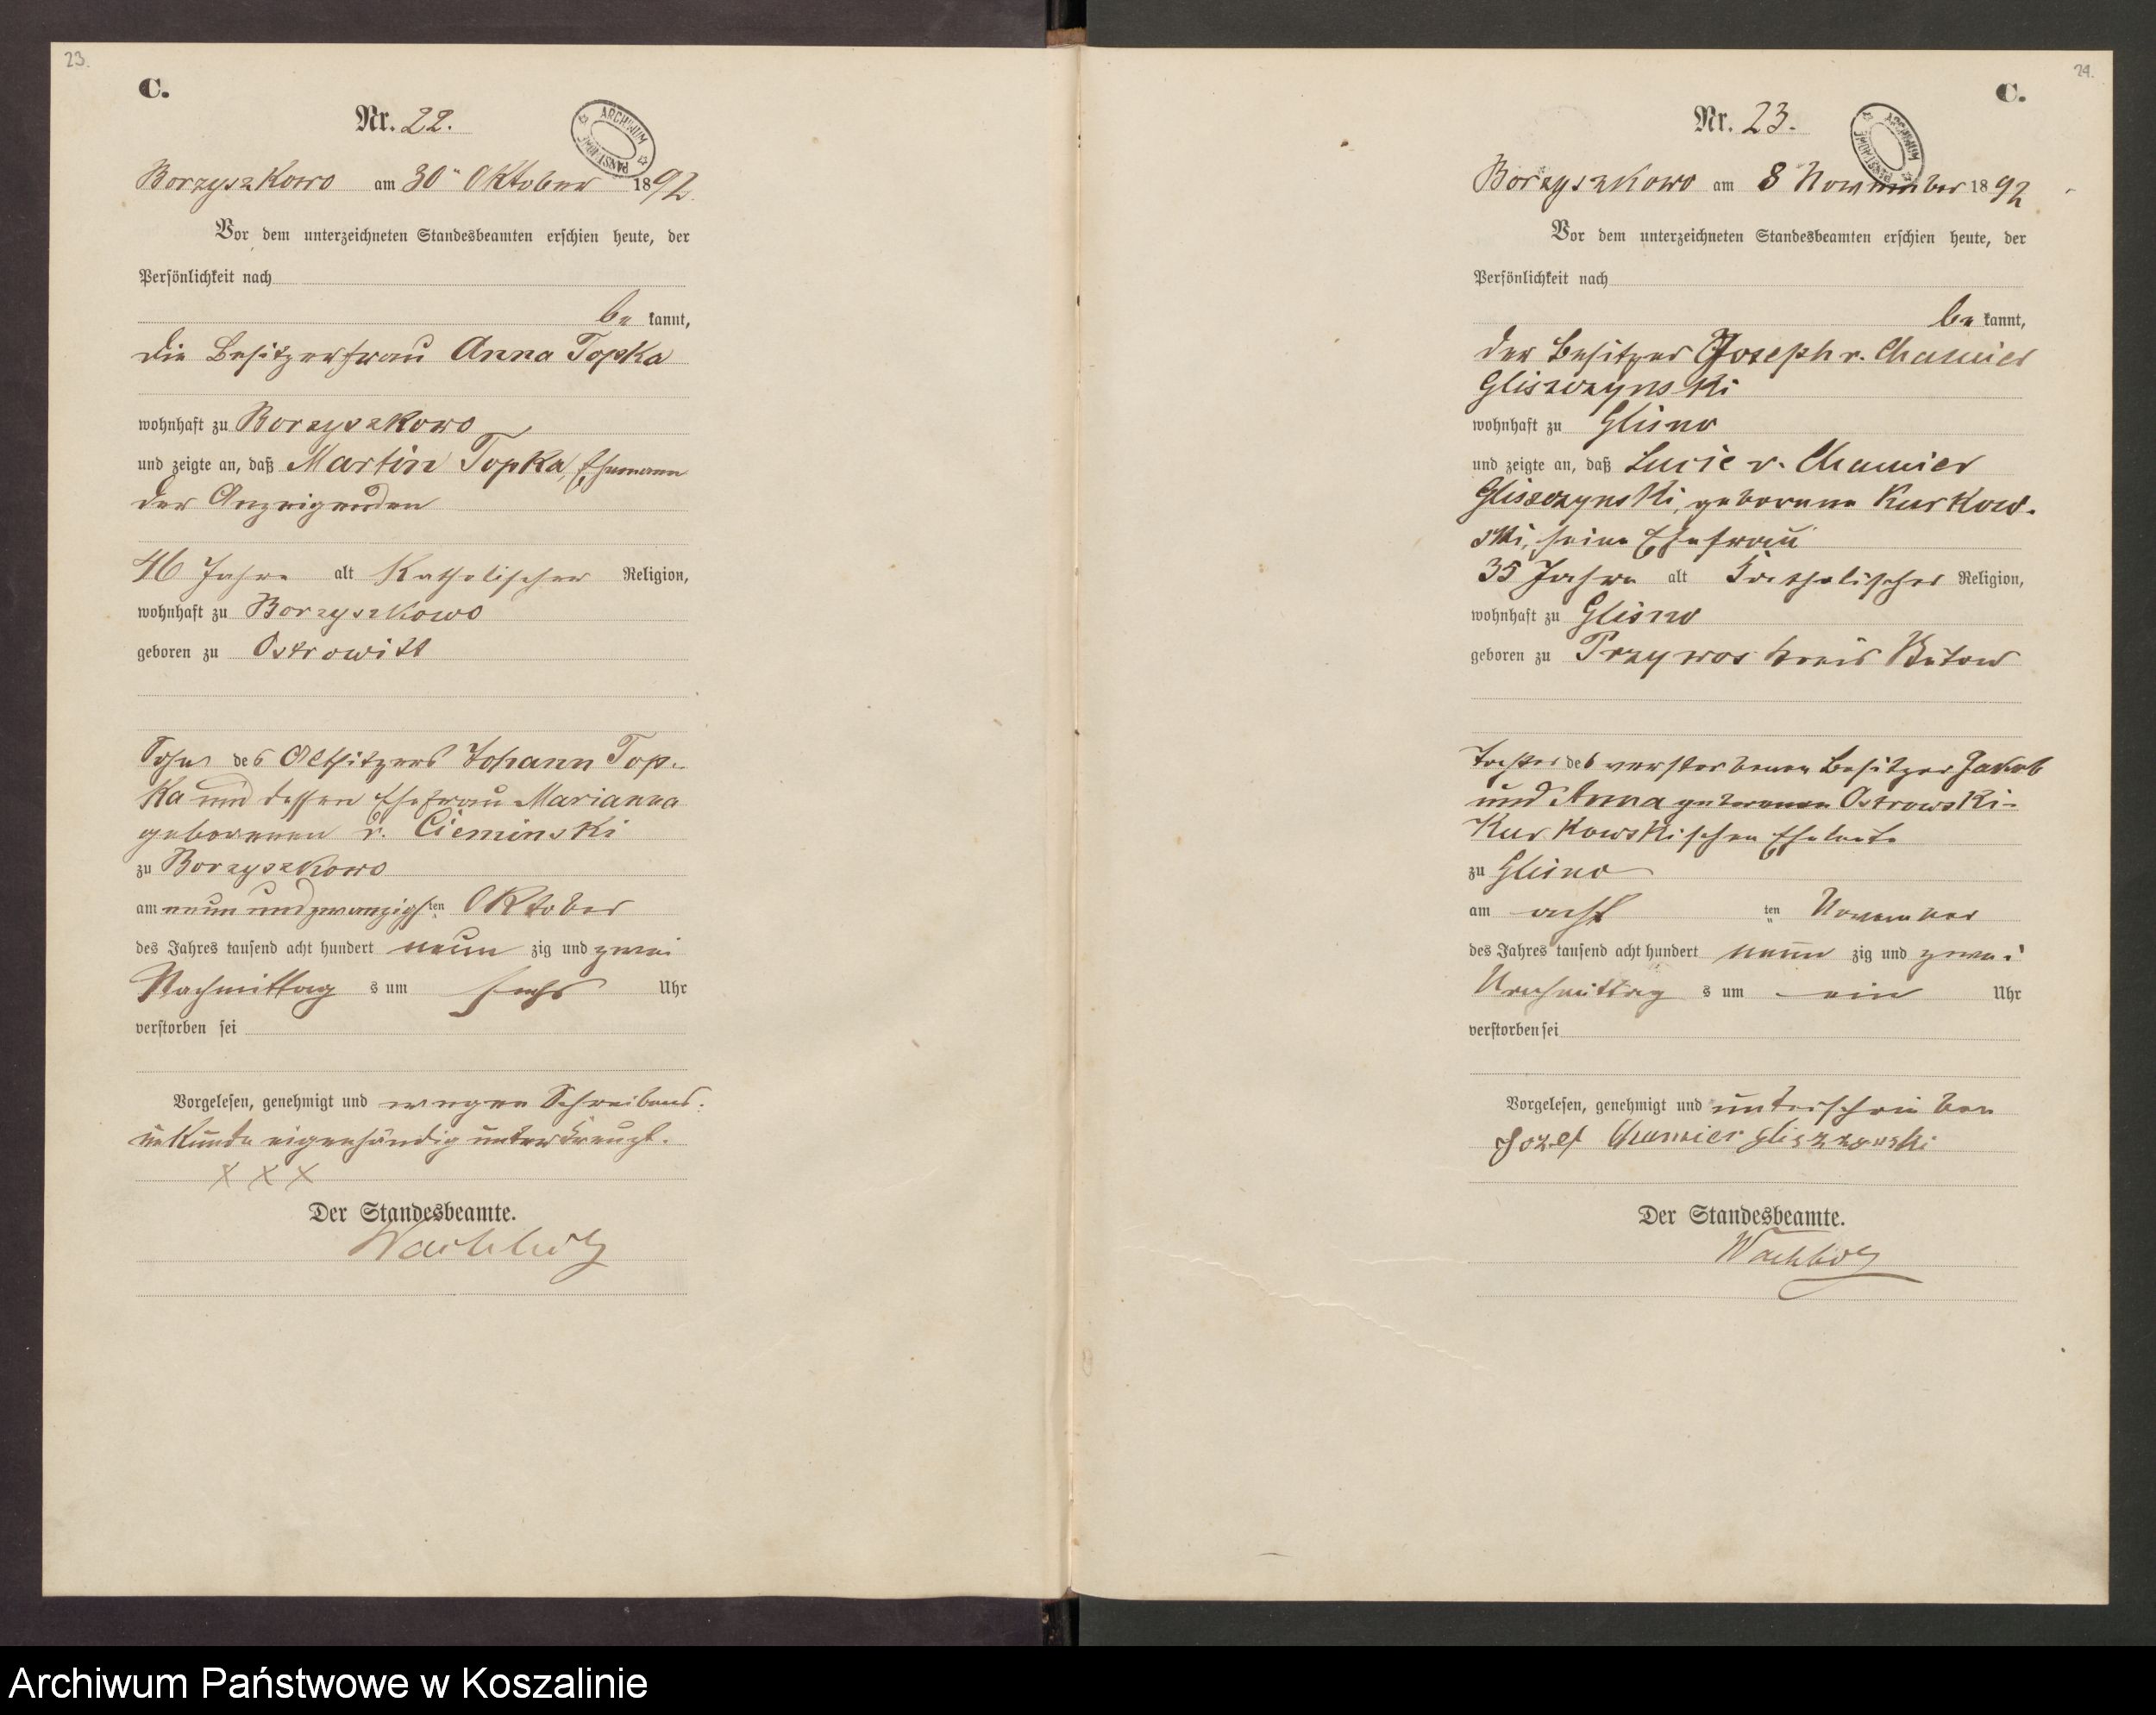 23.
C.
Nr. 22.
ARCHIWUM PAŃSTWOWE
Borzyszkowo am 30ten Oktober 1892.
Vor dem unterzeichneten Standesbeamten erschien heute, der
Persönlichkeit nach
be kannt,
die Besitzerfrau Anna Topka
wohnhaft zu Borzyszkowo
und zeigte an, daß Martin Topka, Ehemann
der Anzeigenden
46 Jahre alt Katholischer Religion,
wohnhaft zu Borzyszkowo
geboren zu Ostrowitt
Sohn des Altsitzers Johann Top-
ka und dessen Ehefrau Marianna
geborenen v. Cieminski
zu Borzyszkowo
am neun und zwanzigsten Oktober
des Jahres tausend acht hundert neun zig und zwei
Nachmittag s um sechs Uhr
verstorben sei
Vorgelesen, genehmigt und wegen Schreibens-
unkunde eigenhändig unterkreuzt.
X X X
Der Standesbeamte.
Wachholz
24.
C.
Nr. 23.
ARCHIWUM PAŃSTWOWE
Borzyszkowo am 8 November 1892
Vor dem unterzeichneten Standesbeamten erschien heute, der
Persönlichkeit nach
be kannt,
der Besitzer Joseph v. Chamier
Gliszczynski
wohnhaft zu Glisno
und zeigte an, daß Lucie v. Chamier
Gliszczynski, geborene Kurkow-
ski, seine Ehefrau
35 Jahre alt Katholischer Religion,
wohnhaft zu Glisno
geboren zu Przywos Kreis Bütow
Tochter des verstorbenen Besitzer Jakob
und Anna geborenen Ostrowski-
Kurkowskischen Eheleute
zu Glisno
am acht ten November
des Jahres tausend acht hundert neun zig und zwei
Nachmittag s um ein Uhr
verstorben sei
Vorgelesen, genehmigt und unterschrieben
Jozef Chamier Gliszzynski
Der Standesbeamte.
Wachholz
Archiwum Państwowe w Koszalinie